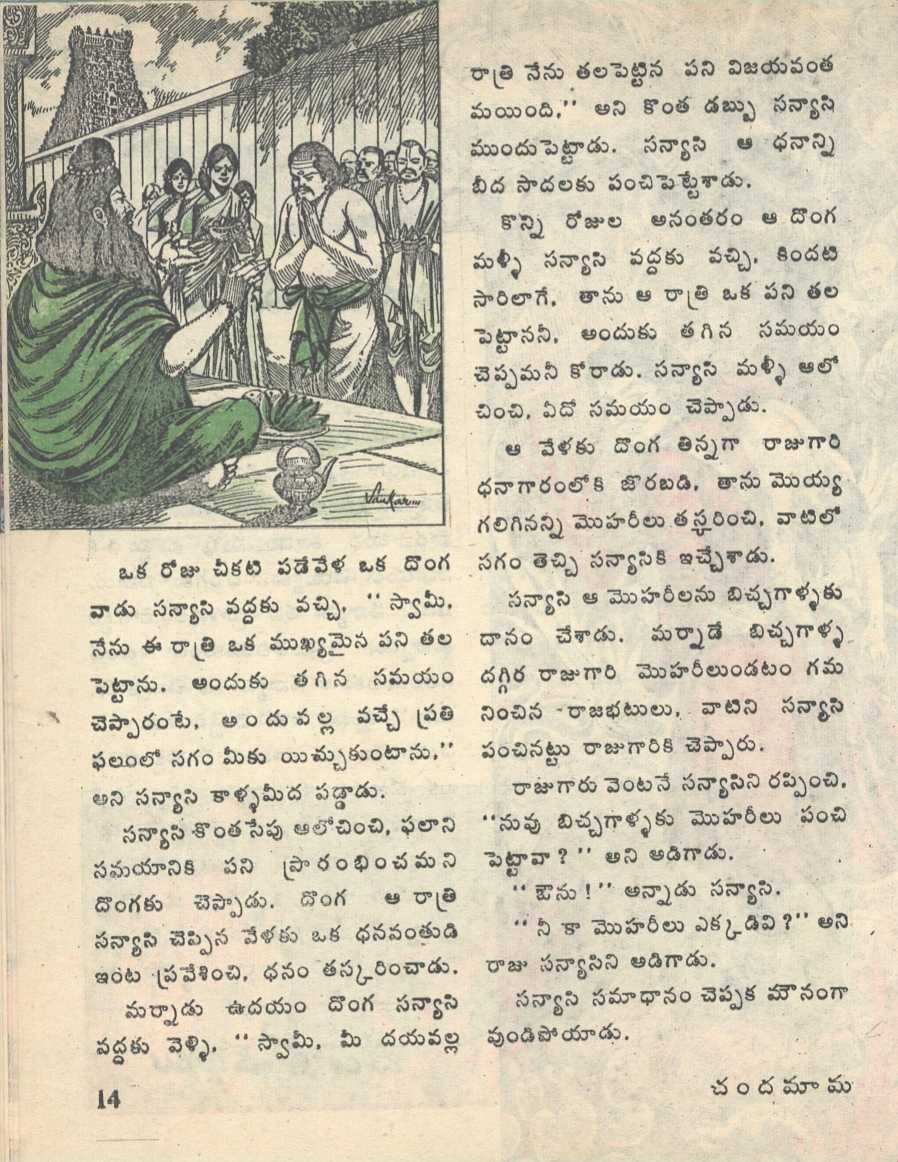 Vankar...
ఒక రోజు చీకటి పడేవేళ ఒక దొంగ
వాడు సన్యాసి వద్దకు వచ్చి, ‘‘స్వామీ,
నేను ఈ రాత్రి ఒక ముఖ్యమైన పని తల
పెట్టాను. అందుకు తగిన సమయం
చెప్పారంటే, అందువల్ల వచ్చే ప్రతి
ఫలంలో సగం మీకు యిచ్చుకుంటాను,’’
అని సన్యాసి కాళ్ళమీద పడ్డాడు.
సన్యాసి కొంతసేపు ఆలోచించి, ఫలాని
సమయానికి పని ప్రారంభించమని
దొంగకు చెప్పాడు. దొంగ ఆ రాత్రి
సన్యాసి చెప్పిన వేళకు ఒక ధనవంతుడి
ఇంట ప్రవేశించి, ధనం తస్కరించాడు.
మర్నాడు ఉదయం దొంగ సన్యాసి
వద్దకు వెళ్ళి, ‘‘స్వామీ, మీ దయవల్ల
రాత్రి నేను తలపెట్టిన పని విజయవంత
మయింది,’’ అని కొంత డబ్బు సన్యాసి
ముందుపెట్టాడు. సన్యాసి ఆ ధనాన్ని
బీద సాదలకు పంచిపెట్టేశాడు.
కొన్ని రోజుల అనంతరం ఆ దొంగ
మళ్ళీ సన్యాసి వద్దకు వచ్చి, కిందటి
సారిలాగే, తాను ఆ రాత్రి ఒక పని తల
పెట్టాననీ, అందుకు తగిన సమయం
చెప్పమనీ కోరాడు. సన్యాసి మళ్ళీ ఆలో
చించి, ఏదో సమయం చెప్పాడు.
ఆ వేళకు దొంగ తిన్నగా రాజుగారి
ధనాగారంలోకి జొరబడి, తాను మొయ్య
గలిగినన్ని మొహరీలు తస్కరించి, వాటిలో
సగం తెచ్చి సన్యాసికి ఇచ్చేశాడు.
సన్యాసి ఆ మొహరీలను బిచ్చగాళ్ళకు
దానం చేశాడు. మర్నాడే బిచ్చగాళ్ళ
దగ్గిర రాజుగారి మొహరీలుండటం గమ
నించిన రాజభటులు, వాటిని సన్యాసి
పంచినట్టు రాజుగారికి చెప్పారు.
రాజుగారు వెంటనే సన్యాసిని రప్పించి,
‘‘నువు బిచ్చగాళ్ళకు మొహరీలు పంచి
పెట్టావా?’’ అని అడిగాడు.
‘‘ఔను!’’ అన్నాడు సన్యాసి.
‘‘నీ కా మొహరీలు ఎక్కడివి?’’ అని
రాజు సన్యాసిని అడిగాడు.
సన్యాసి సమాధానం చెప్పక మౌనంగా
వుండిపోయాడు.
14
చందమామ